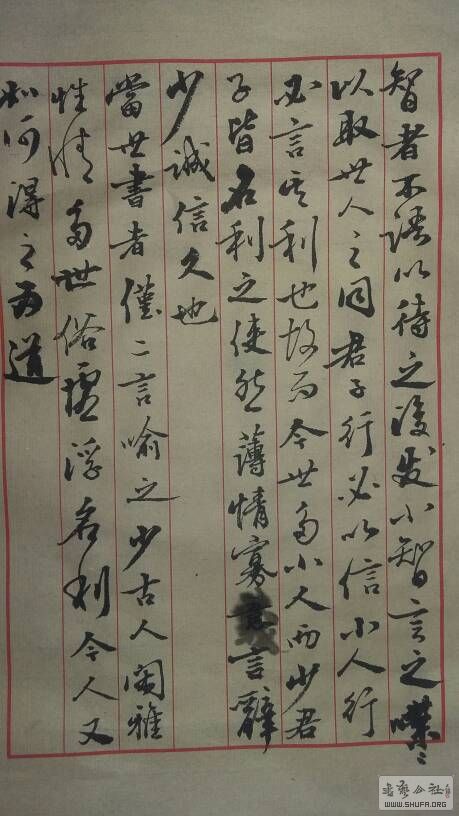 智者不语以待之后发小智言之喋〻
以取世人之同君子行必以信小人行
必言其利也故而今世多小人而少君
子皆名利之使然薄情寡言辞
少诚信久也
當世書者僅〻言喻之少古人闲雅
性情多世俗虚浮名利今人又
如何得之為道
书艺公社
WWW.SHUFA.ORG